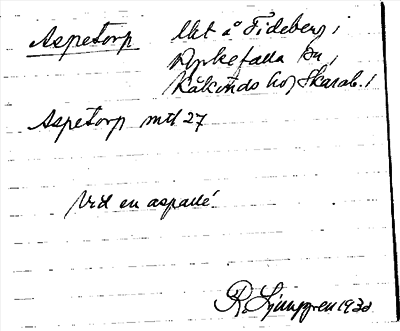 Aspetorp Uet å Fideberg i
Dyrkefalla Sn,
Kåkinds hd, Skarab. l
Aspetorp mtl 27
Vid en aspallé
R. Ljunggren 1930